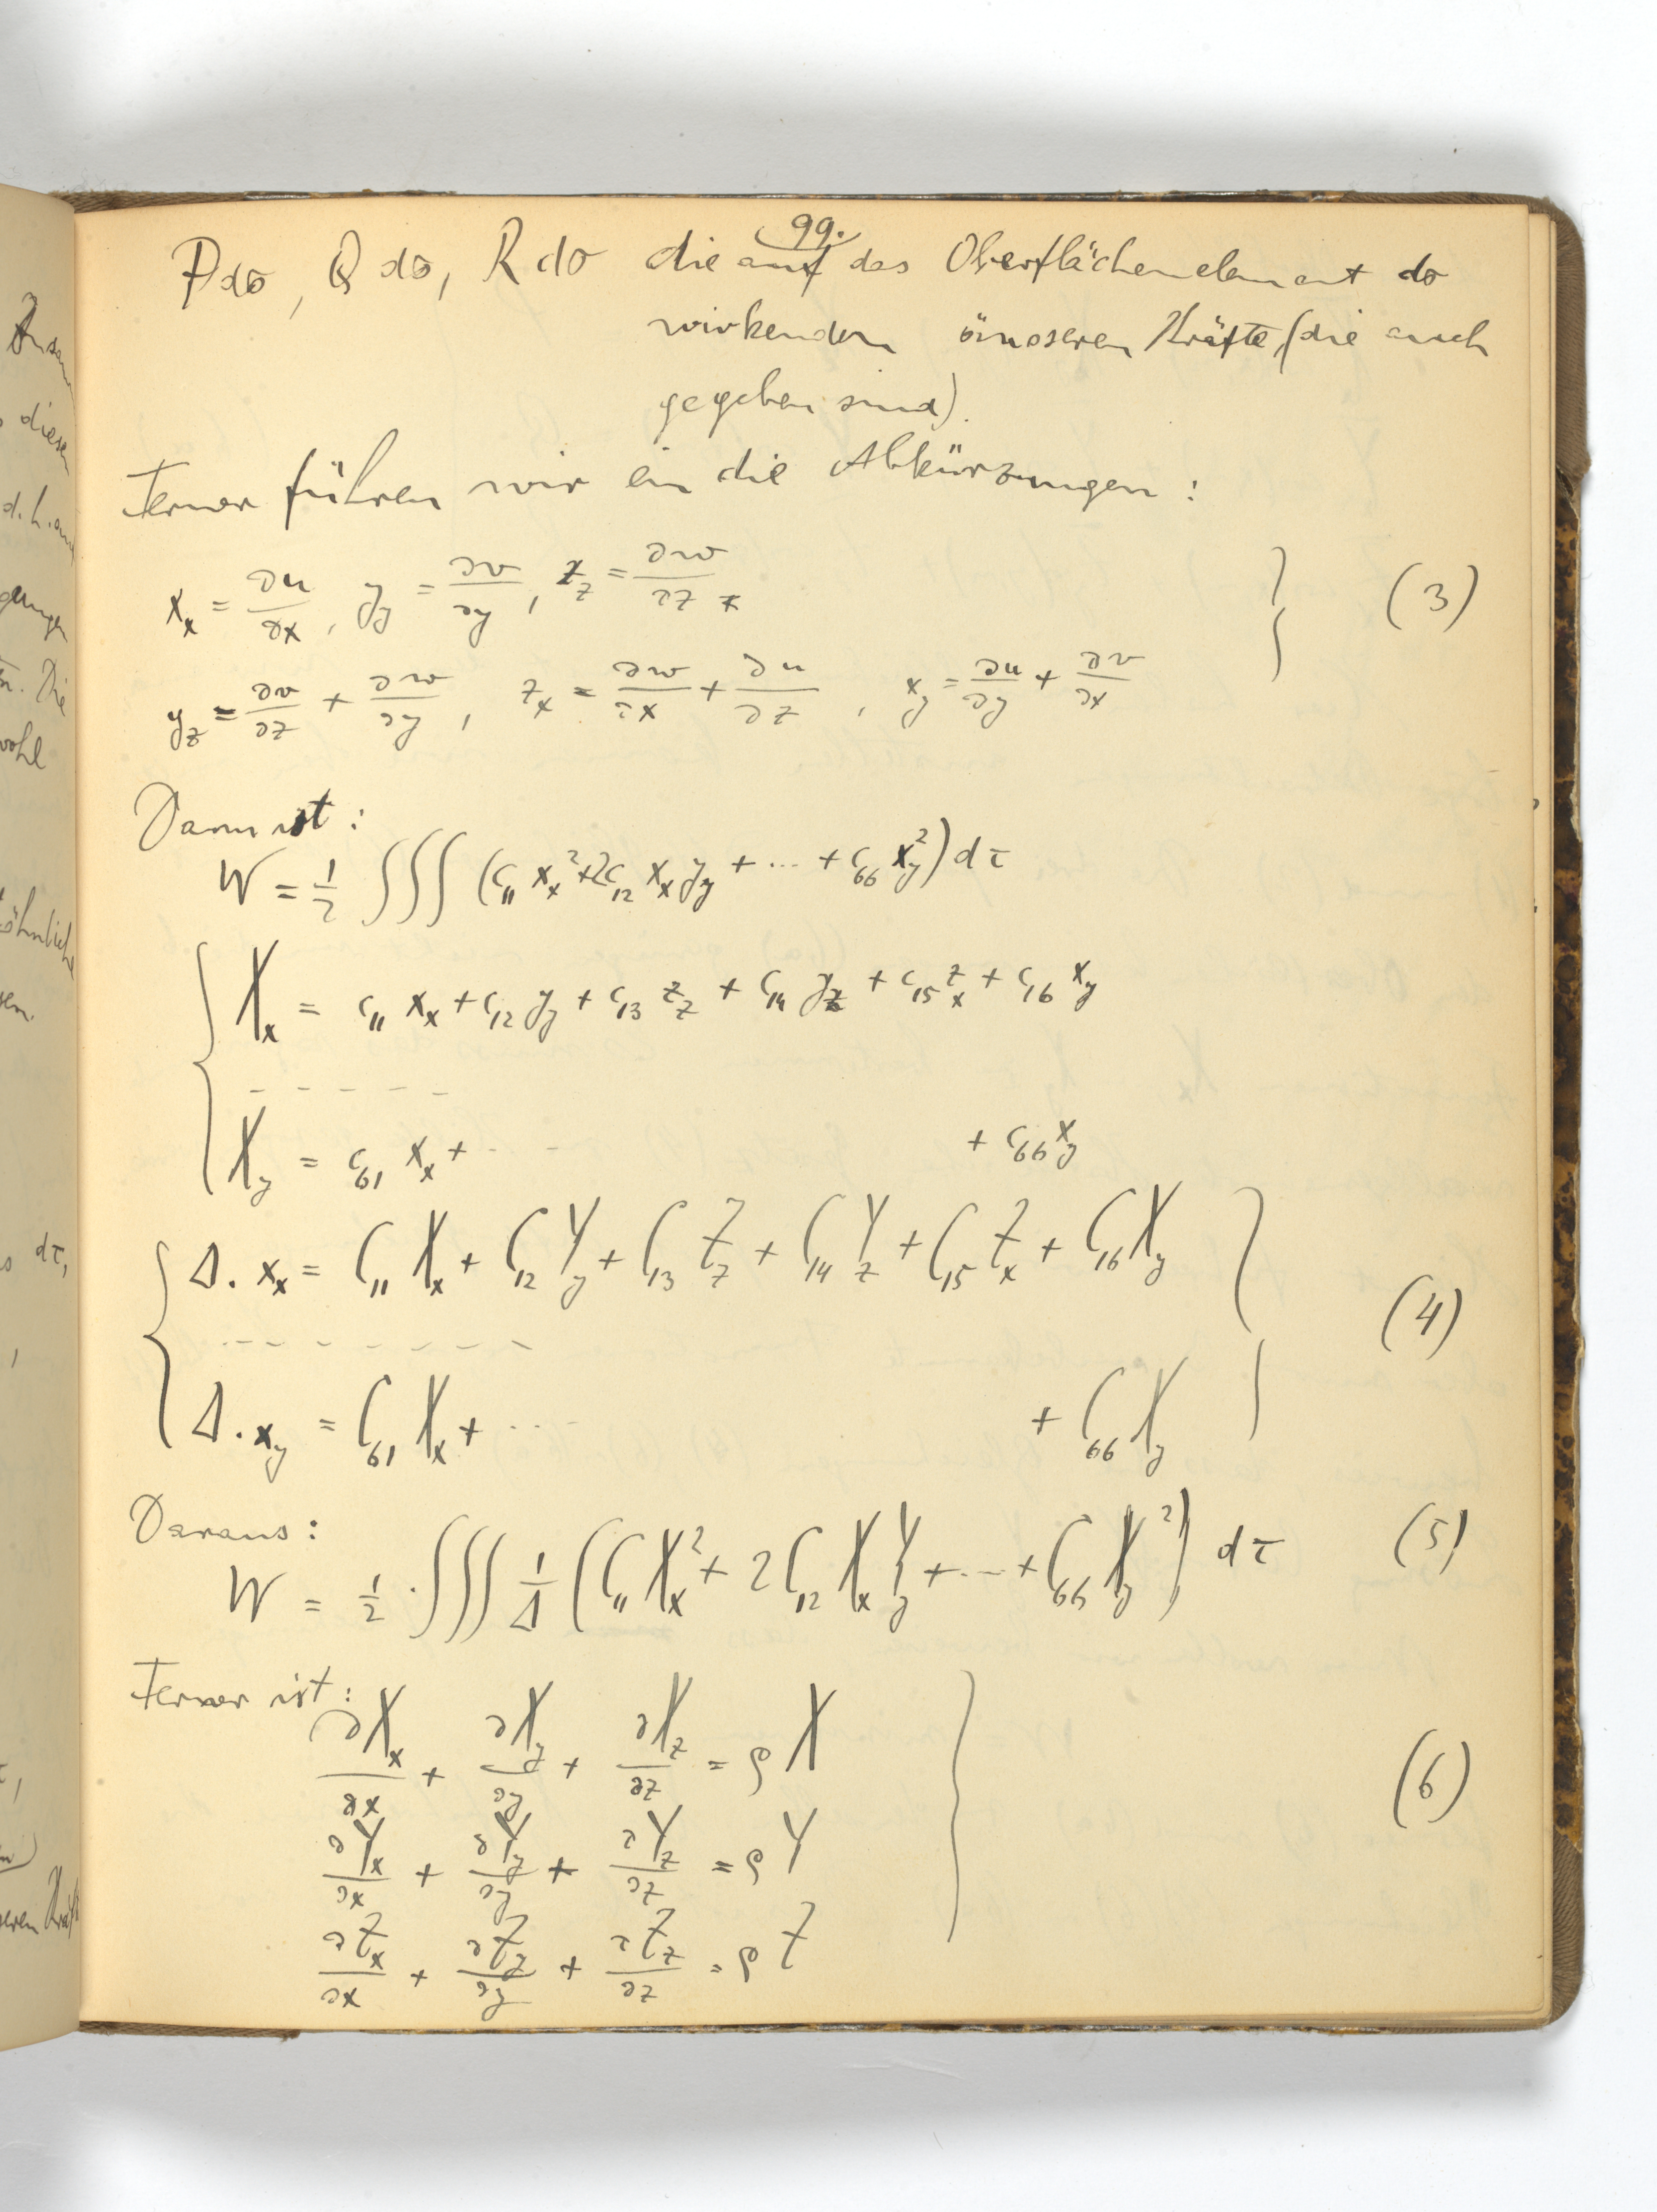 99.
P do, Q do, R do die auf das Oberflächenelement do
wirkenden äusseren Kräfte, (die auch
gegeben sind).
Ferner führen wir ein die Abkürzungen:
x_x = ∂u/∂x, y_y = ∂v/∂y, z_z = ∂w/∂z
y_z = ∂v/∂z + ∂w/∂y, z_x = ∂w/∂x + ∂u/∂z, x_y = ∂u/∂y + ∂v/∂x (3)
Dann ist:
W = 1/2 ∫∫∫ (c_11 x_x² + 2c_12 x_x y_y + ... + c_66 x_y²) dτ
X_x = c_11 x_x + c_12 y_y + c_13 z_z + c_14 y_z + c_15 z_x + c_16 x_y
- - - - -
X_y = c_61 x_x + - - - + c_66 x_y
Δ. x_x = C_11 X_x + C_12 Y_y + C_13 Z_z + C_14 Y_z + C_15 Z_x + C_16 X_y
- - - - - - - - (4)
Δ. x_y = C_61 X_x + ... + C_66 X_y
Daraus:
W = 1/2 . ∫∫∫ 1/Δ (C_11 X_x² + 2 C_12 X_x Y_y + ... + C_66 X_y²) dτ (5)
Ferner ist:
∂X_x/∂x + ∂X_y/∂y + ∂X_z/∂z = ρX
∂Y_x/∂x + ∂Y_y/∂y + ∂Y_z/∂z = ρY (6)
∂Z_x/∂x + ∂Z_y/∂y + ∂Z_z/∂z = ρZ
diesen
d.h.
Die
wohl
dτ,